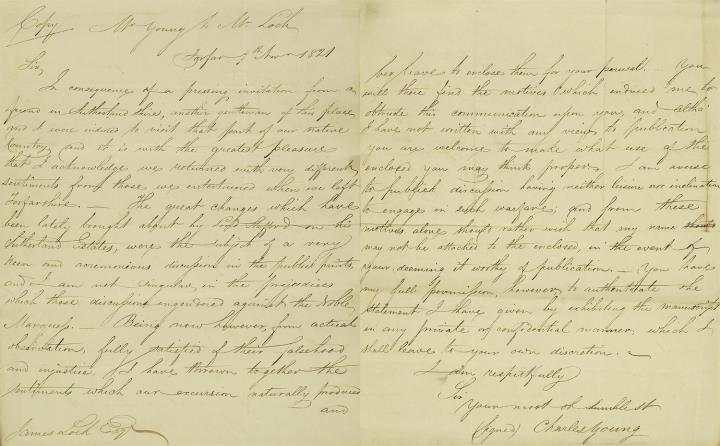 Copy Mr Young to Mr Loch
Forfar 7th Novr 1821
Sir,
In consequence of a pressing invitation from a
friend in Sutherland Shire, another gentleman of this place
and I were induced to visit that part of our native
Country, and it is with the greatest pleasure
that I acknowledge we returned with very different
sentiments from those we entertained when we left
Forfarshire. — The great changes which have
been lately brought about by Lord Stafford on his
Sutherland Estates, were the subject of a very
keen and acrimonious discussion in the public prints,
and I am not singular in the prejudices
which those discussions engendered against the Noble
Marquess. — Being now however, from actual
observation, fully satisfied of their falsehood
and injustice, I have thrown together the
sentiments which our excursion naturally produced
and
James Loch Esqr
beg leave to enclose them for your perusal. — You
will there find the motives which induced me to
obtrude this communication upon you, and altho'
I have not written with any view to publication
you are welcome to make what use of the
enclosed you may think proper. I am averse
to publick discussion having neither leisure nor inclination
to engage in such warfare; and from these
motives alone should rather wish that my name
may not be attached to the enclosed, in the event of
your deeming it worthy of publication. — You have
my full permission, however, to authenticate the
statement I have given by exhibiting the manuscript
in any private or confidential manner, which I
shall leave to your own discretion. —
I am respectfully
Sir
Your most ob humble St
(signed) Charles Young